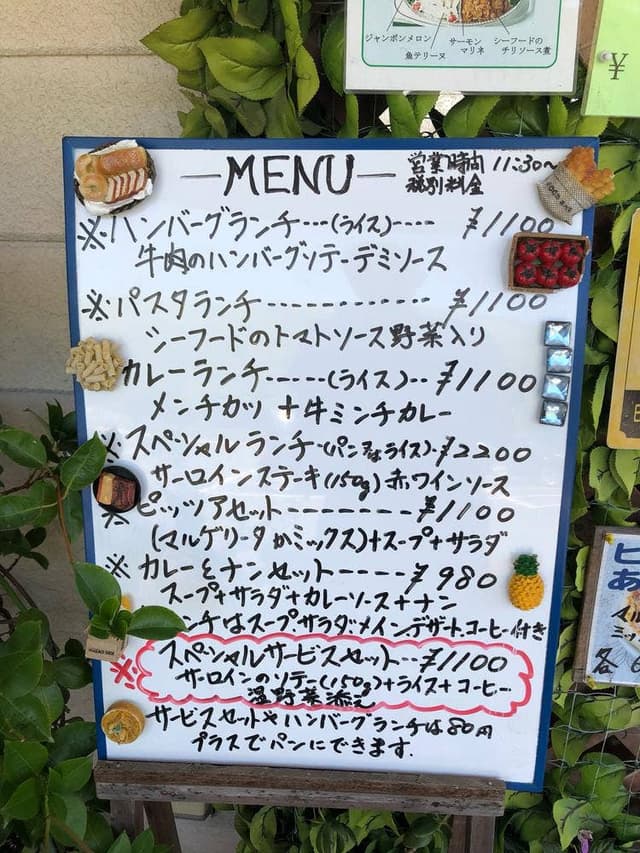 ジャンボンメロン
サーモン
マリネ
シーフードの
チリソース煮
魚テリーヌ
¥
—MENU—
営業時間 11:30〜
税別料金
※ハンバーグランチ---(ライス)---- ¥1100
牛肉のハンバーグソテーデミソース
※パスタランチ------------ ¥1100
シーフードのトマトソース野菜入り
カレーランチ-----(ライス)-- ¥1100
メンチカツ+牛ミンチカレー
※スペシャルランチ-(パン又はライス)-¥2200
サーロインステーキ(150g)赤ワインソース
※ピッツアセット------- ¥1100
(マルゲリータかミックス)+スープ+サラダ
※カレーとナンセット-----¥980
スープ+サラダ+カレーソース+ナン
ンチはスープ.サラダ.メイン.デザート.コーヒー付き
※スペシャルサービスセット--¥1100
サーロインのソテー(150g)+ライス+コーヒー
温野菜添え
サービスセットやハンバーグランチは80円
プラスでパンにできます.
ピ
あ
マル
ミッ
各